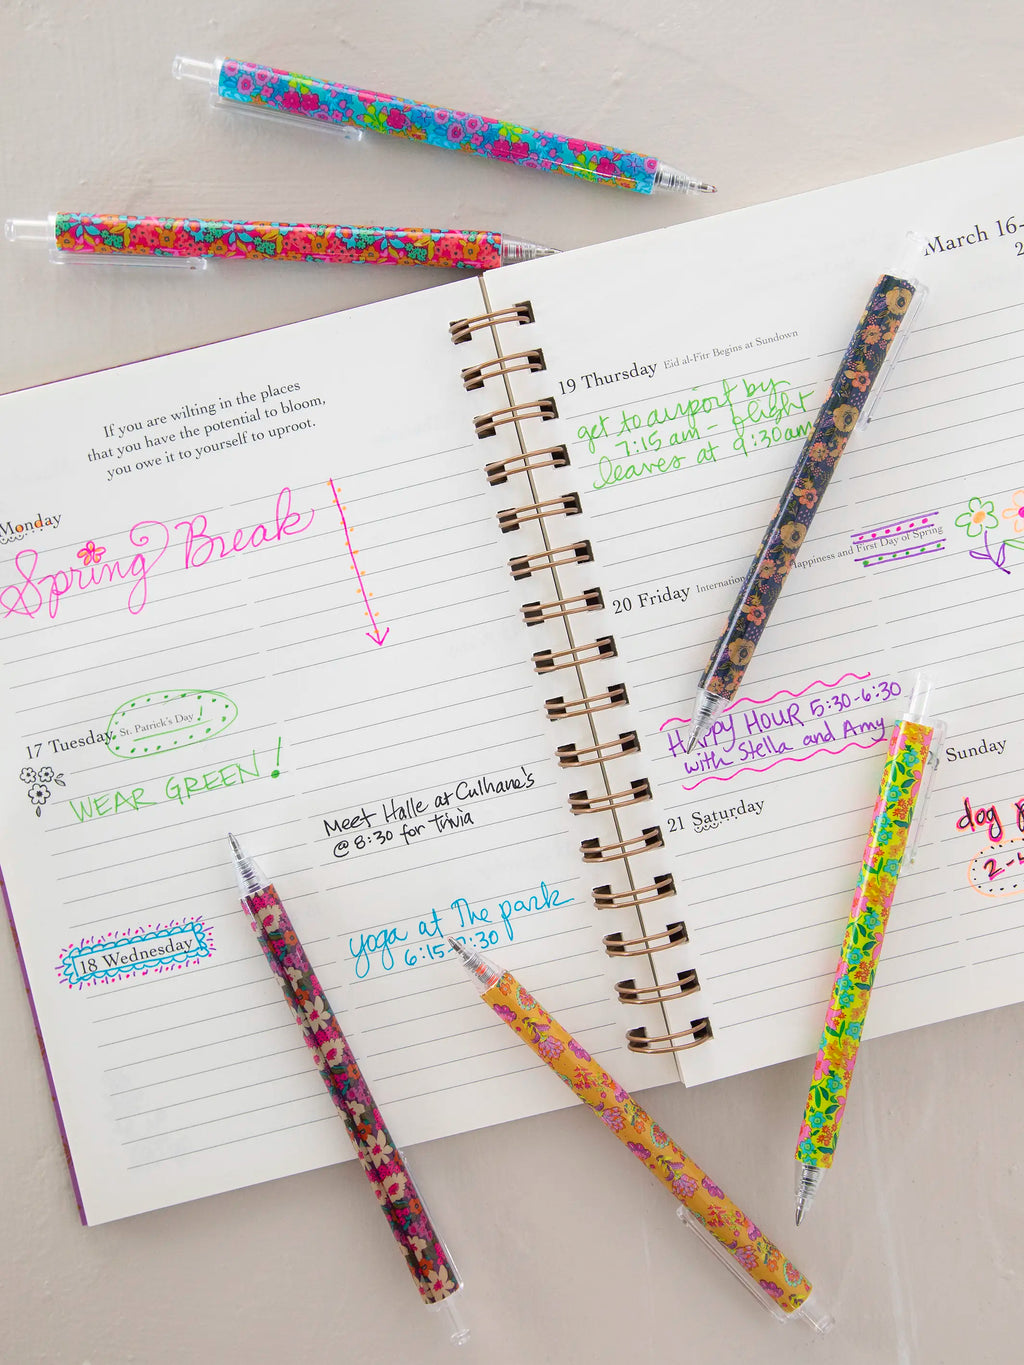 If you are wilting in the places
that you have the potential to bloom,
you owe it to yourself to uproot.
Monday
Spring Break
17 Tuesday St. Patrick's Day !
WEAR GREEN!
Meet Halle at Culhane's
@ 8:30 for trivia
18 Wednesday
yoga at The park
6:15- :30
March 16-
2
19 Thursday Eid al-Fitr Begins at Sundown
get to airport by
7:15 am - flight
leaves at 9:30am
20 Friday Internation Happiness and First Day of Spring
HAPPY HOUR 5:30-6:30
with Stella and Amy
21 Saturday
Sunday
dog
2-